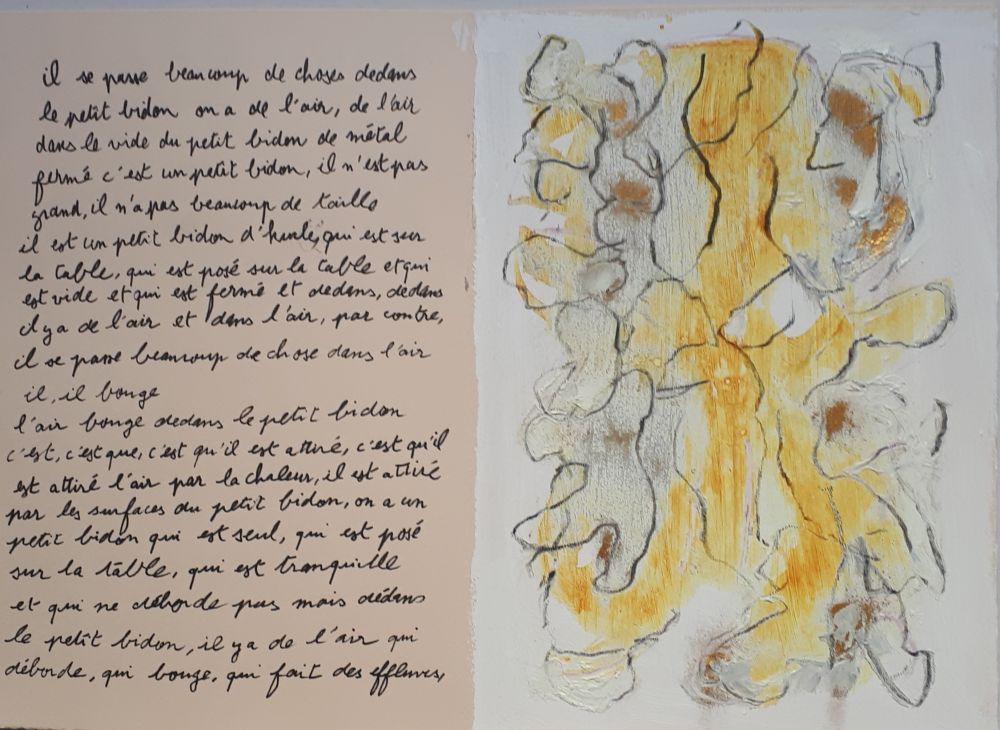 il se passe beaucoup de choses dedans
le petit bidon on a de l'air, de l'air
dans le vide du petit bidon de métal
fermé c'est un petit bidon, il n'est pas
grand, il n'a pas beaucoup de taille
il est un petit bidon d'huile, qui est sur
la table, qui est posé sur la table et qui
est vide et qui est fermé et dedans, dedans
il y a de l'air et dans l'air, par contre,
il se passe beaucoup de chose dans l'air
il, il bouge
l'air bouge dedans le petit bidon
c'est, c'est que, c'est qu'il est attiré, c'est qu'il
est attiré l'air par la chaleur, il est attiré
par les surfaces du petit bidon, on a un
petit bidon qui est seul, qui est posé
sur la table, qui est tranquille
et qui ne déborde pas mais dédans
le petit bidon, il y a de l'air qui
déborde, qui bouge, qui fait des effluves,